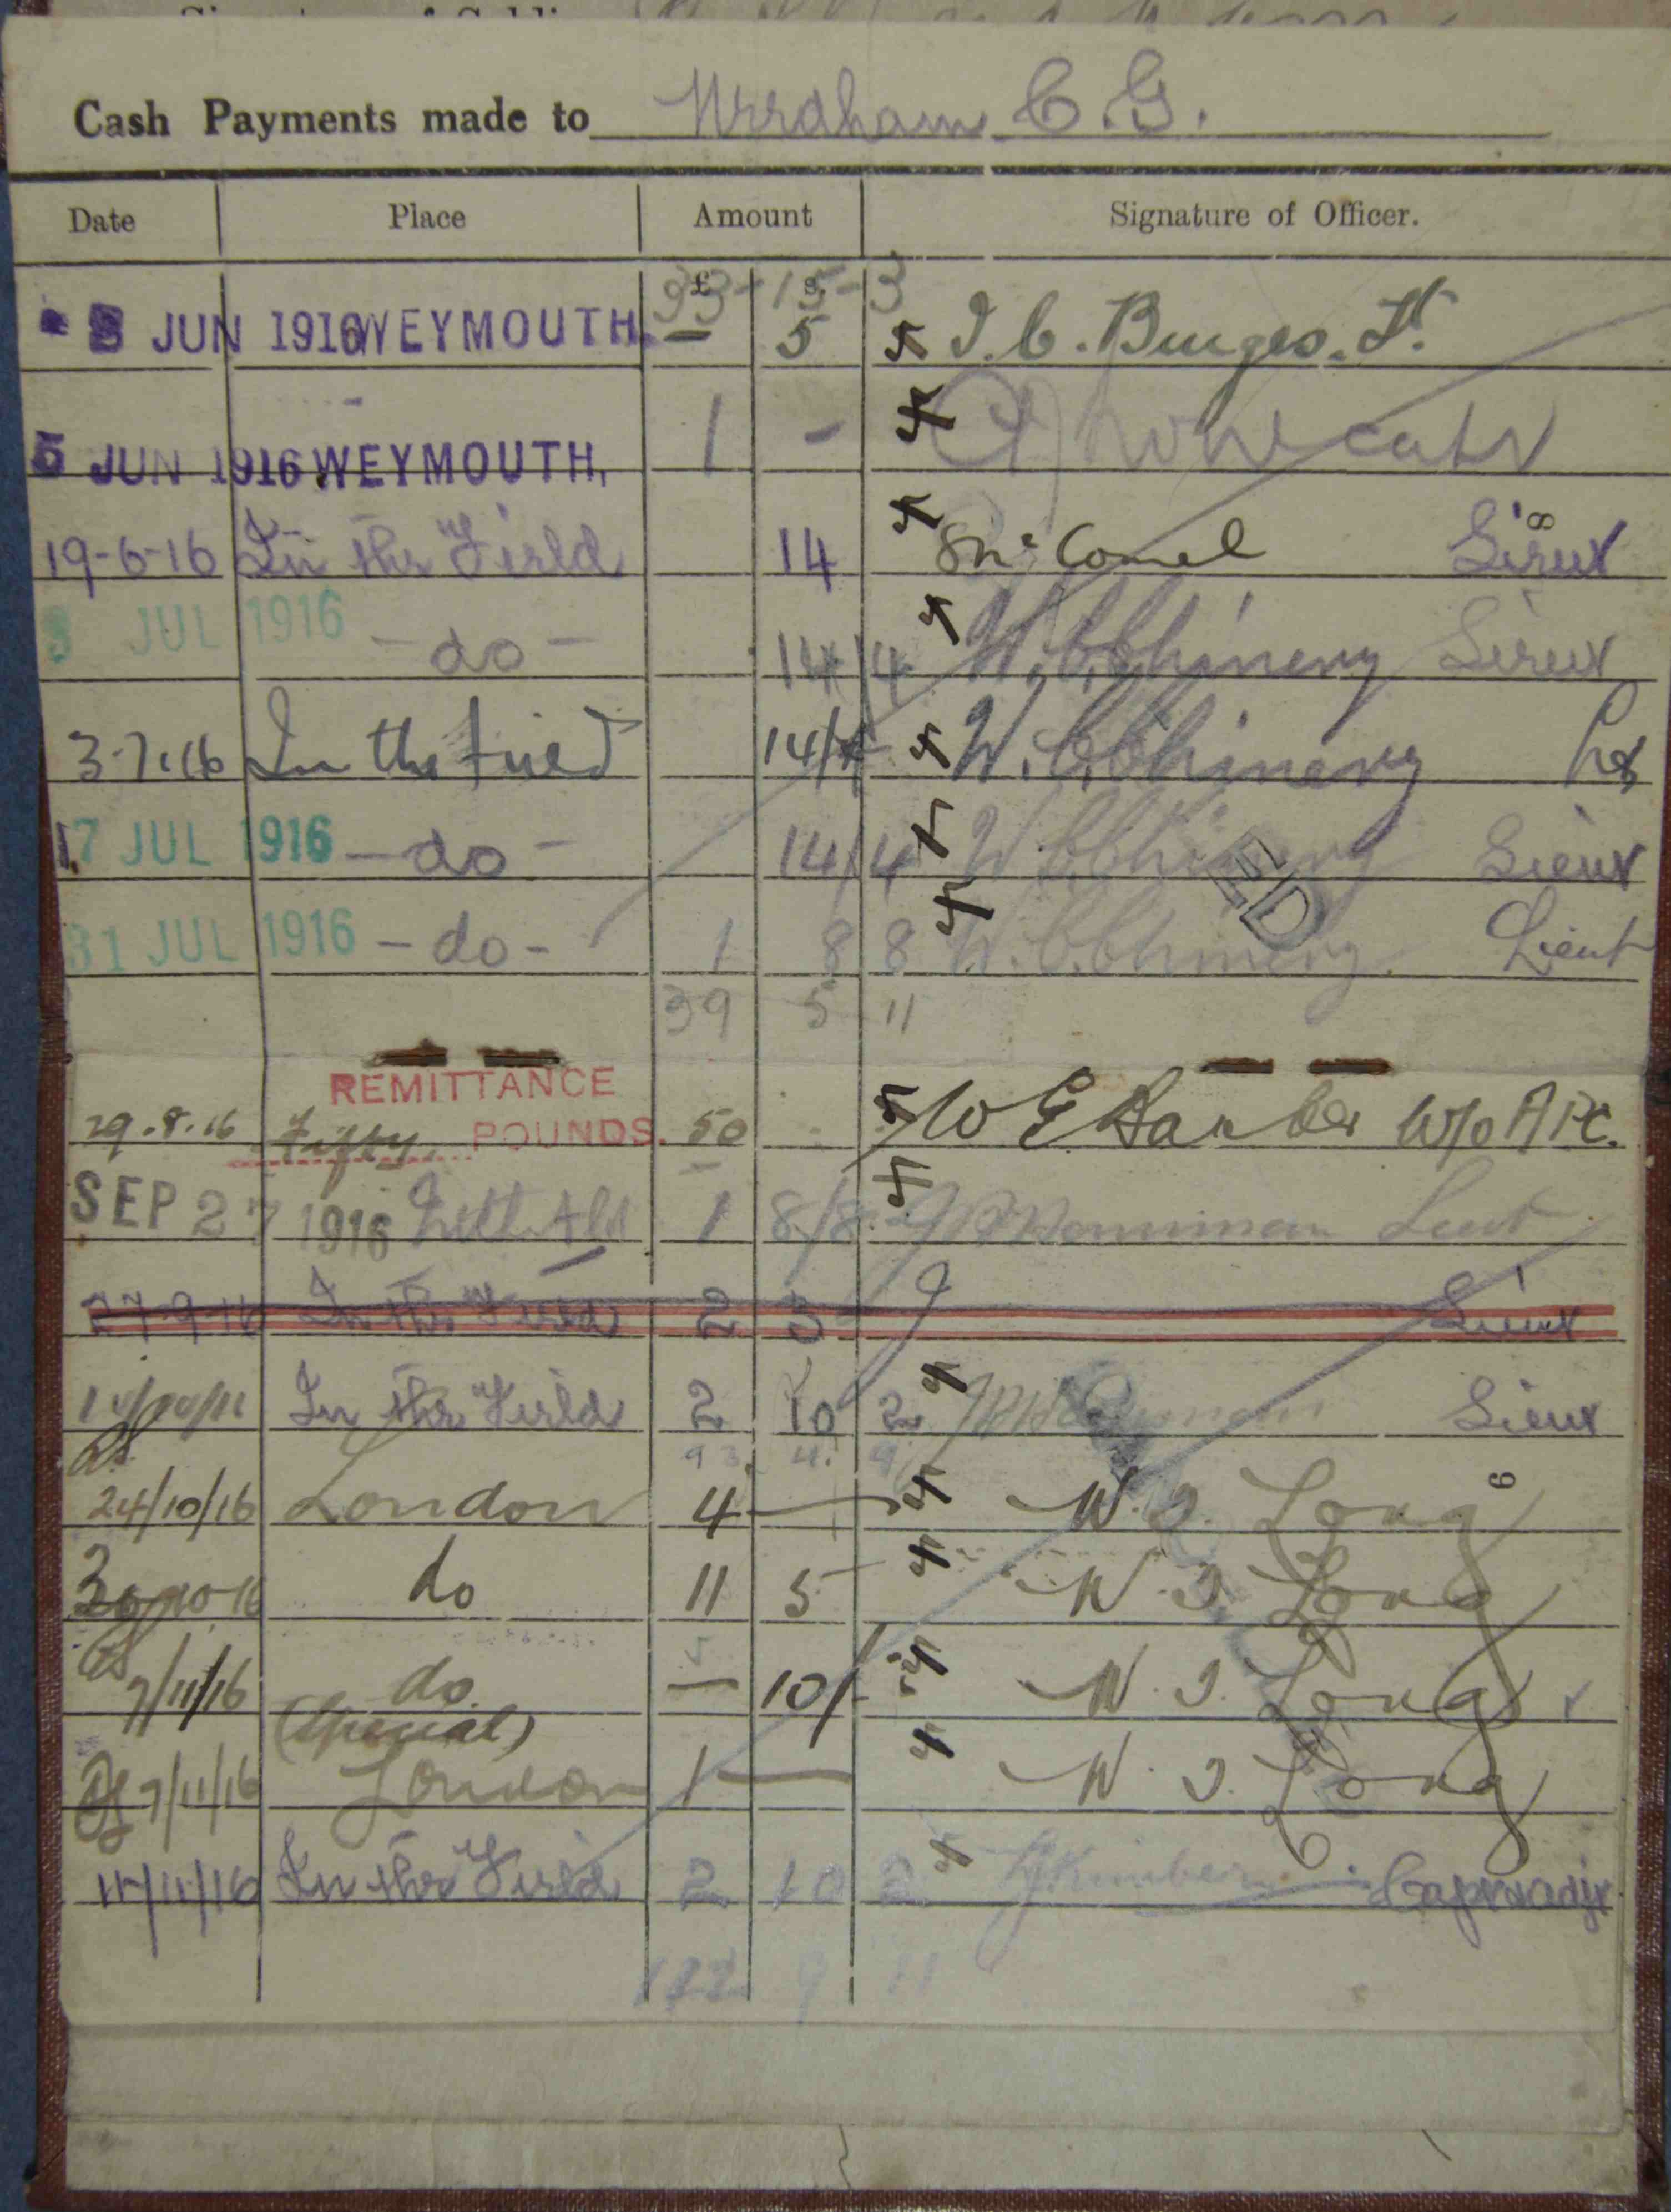 Cash Payments made to C.G.
Date Place Amount Signature of Officer.
£ s.
33-15-3
JUN 1916 WEYMOUTH. — 5 Burges. Lt.
5 JUN 1916 WEYMOUTH, 1 -
19-6-16 In the Field 14 Lieut 8
3 JUL 1916 - do - 14/4 W. C. Chinery Lieut
3.7.16 In the Field 14/4 W. C. Chinery Lt
17 JUL 1916 - do - 14/4 W. C. Chinery Lieut
ED
31 JUL 1916 - do - 1 8 8 W. C. Chinery Lieut
39 5 11
REMITTANCE
29.8.16 Fifty POUNDS. 50 W E
SEP 27 1916 1 8/8 Merriman Lieut
27-9-16 In the Field 2 3 Lieut
In the Field 2 10 2 Merriman Lieut
93 4 9
24/10/16 London 4 — W. J. Long 6
10 16 do 11 5 W. J. Long
7/11/16 do 10/- W. J. Long
(Special)
7/11/16 London 1 — W. J. Long
11/11/16 In the Field 2 10 2 Capt & Adjt
112 9 11